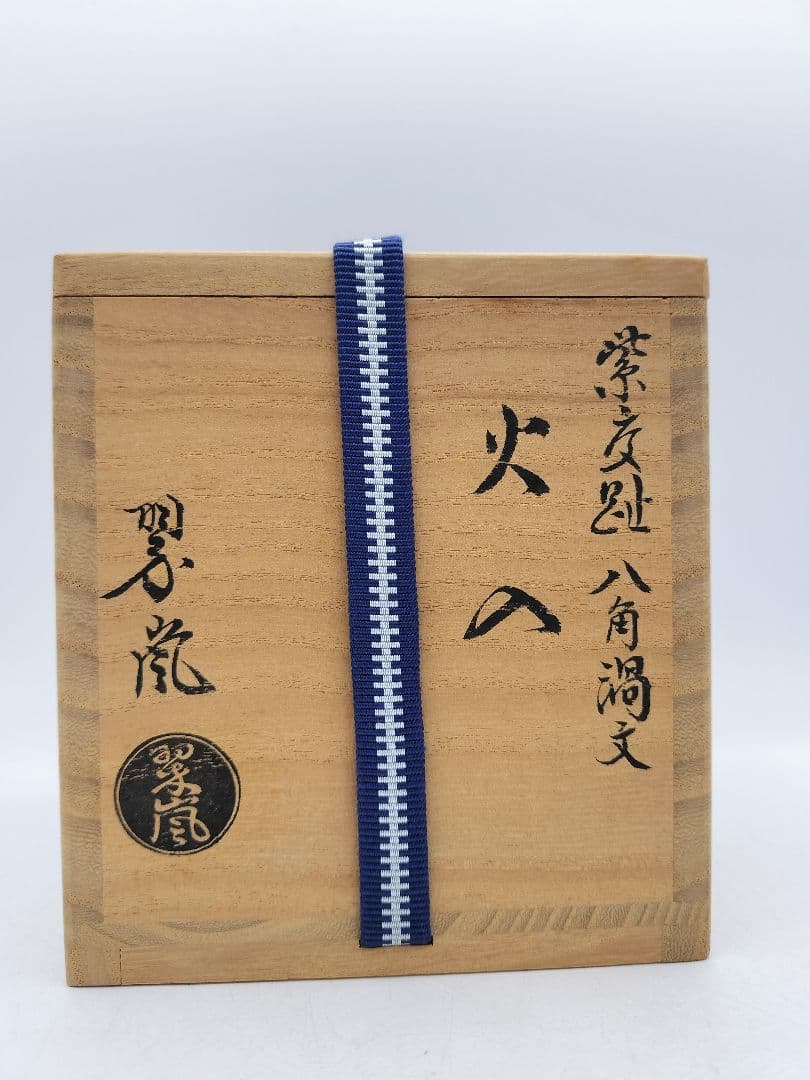 紫交趾 八角渦文
火入
翠嵐
翠嵐